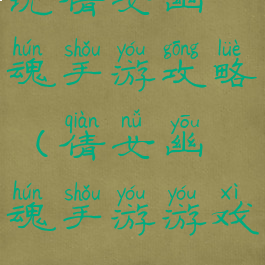 倩女幽
hún shǒu yóu gōng lüè
魂手游攻略
qiàn nǚ yōu
（倩女幽
hún shǒu yóu yóu xì
魂手游游戏